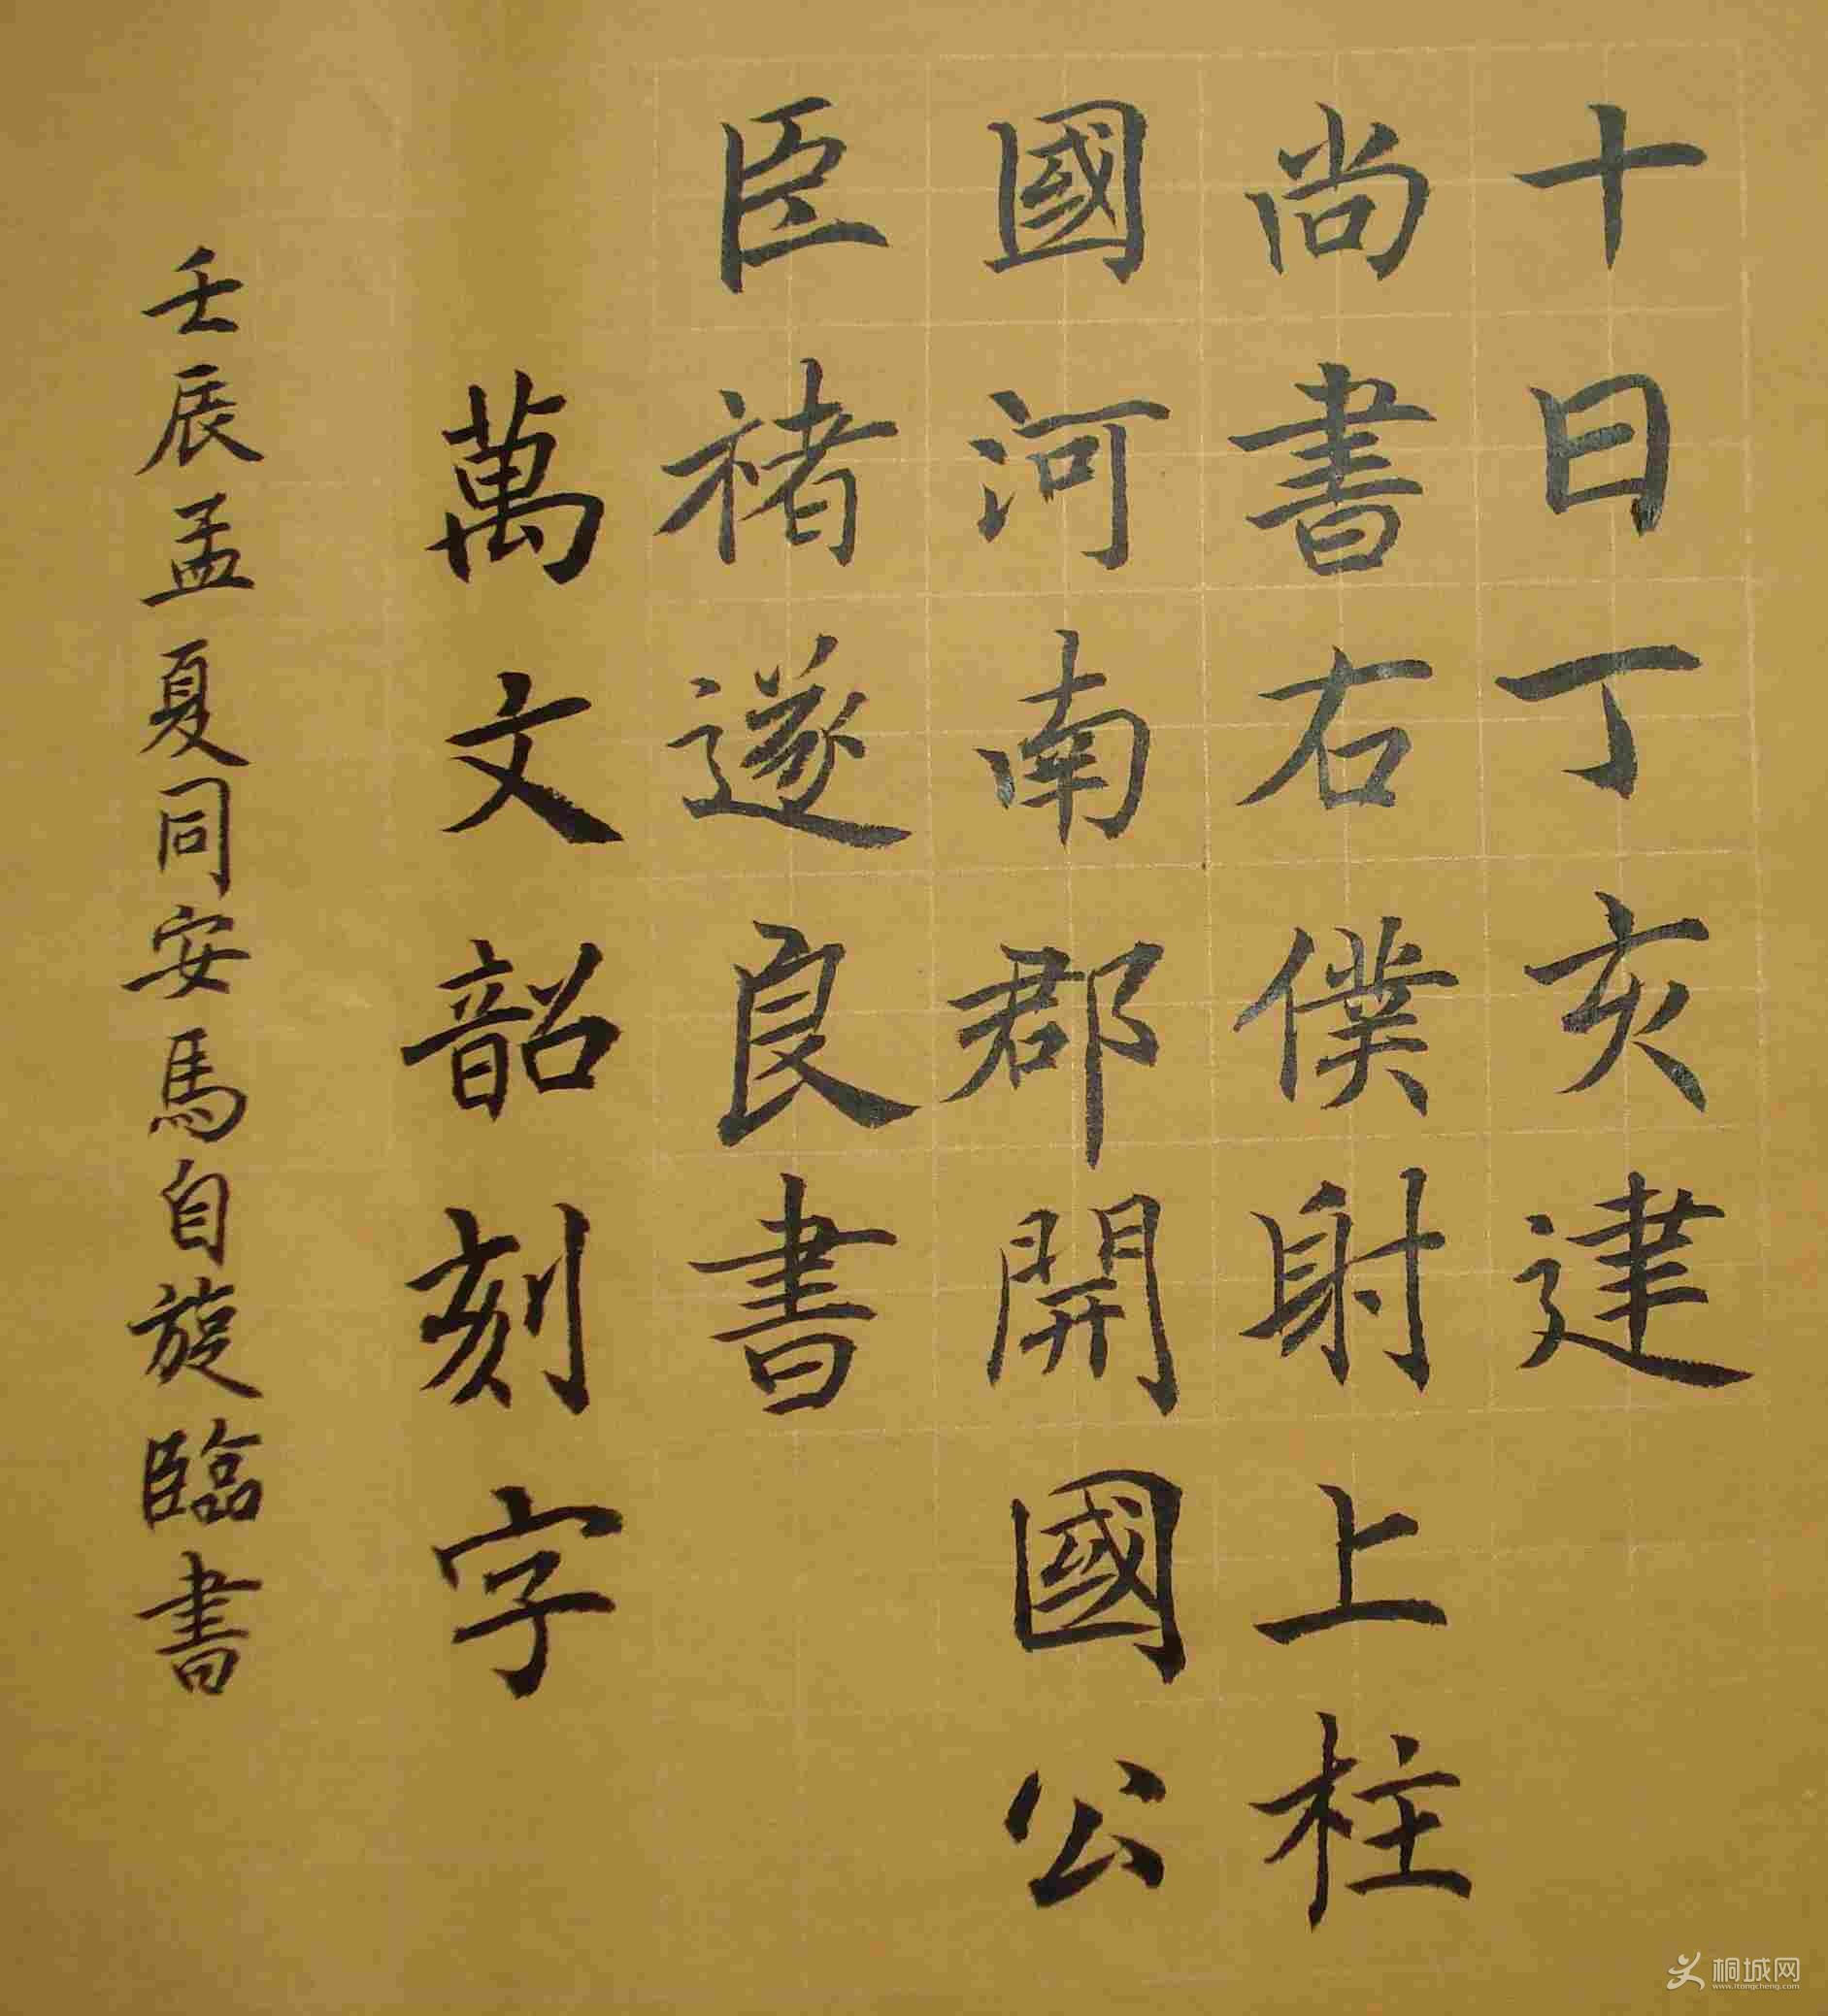 十日丁亥建
尚書右僕射上柱
國河南郡開國公
臣褚遂良書
萬文韶刻字
壬辰孟夏同安馬自旋臨書
桐城网
www.ttongcheng.com